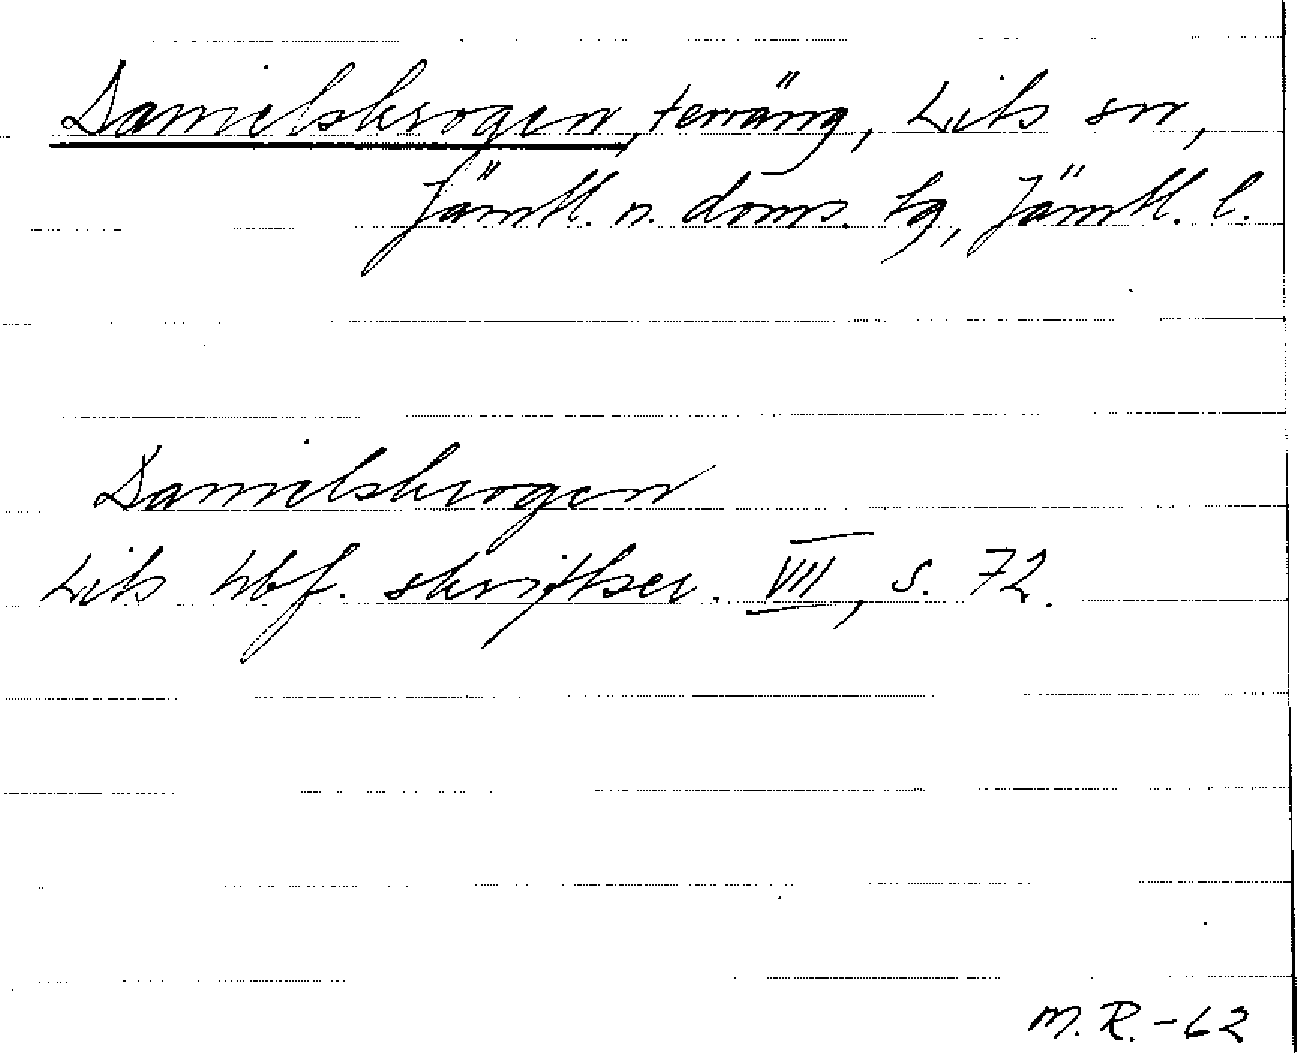 Danielskrogen, terräng, Lits sn,
Jämtl. n. doms. tg, Jämtl. l.
Danielskrogen
Lits hbf. skriftser. VII, s. 72.
M.R.-62